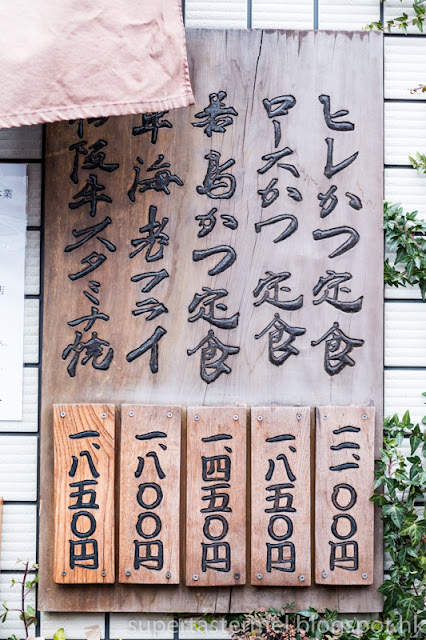 ヒレかつ定食
ロースかつ定食
若鳥かつ定食
車海老フライ
阪牛スタミナ焼
二、一〇〇円
一、八五〇円
一、四五〇円
一、八〇〇円
一、八五〇円
supertastermel.blogspot.hk